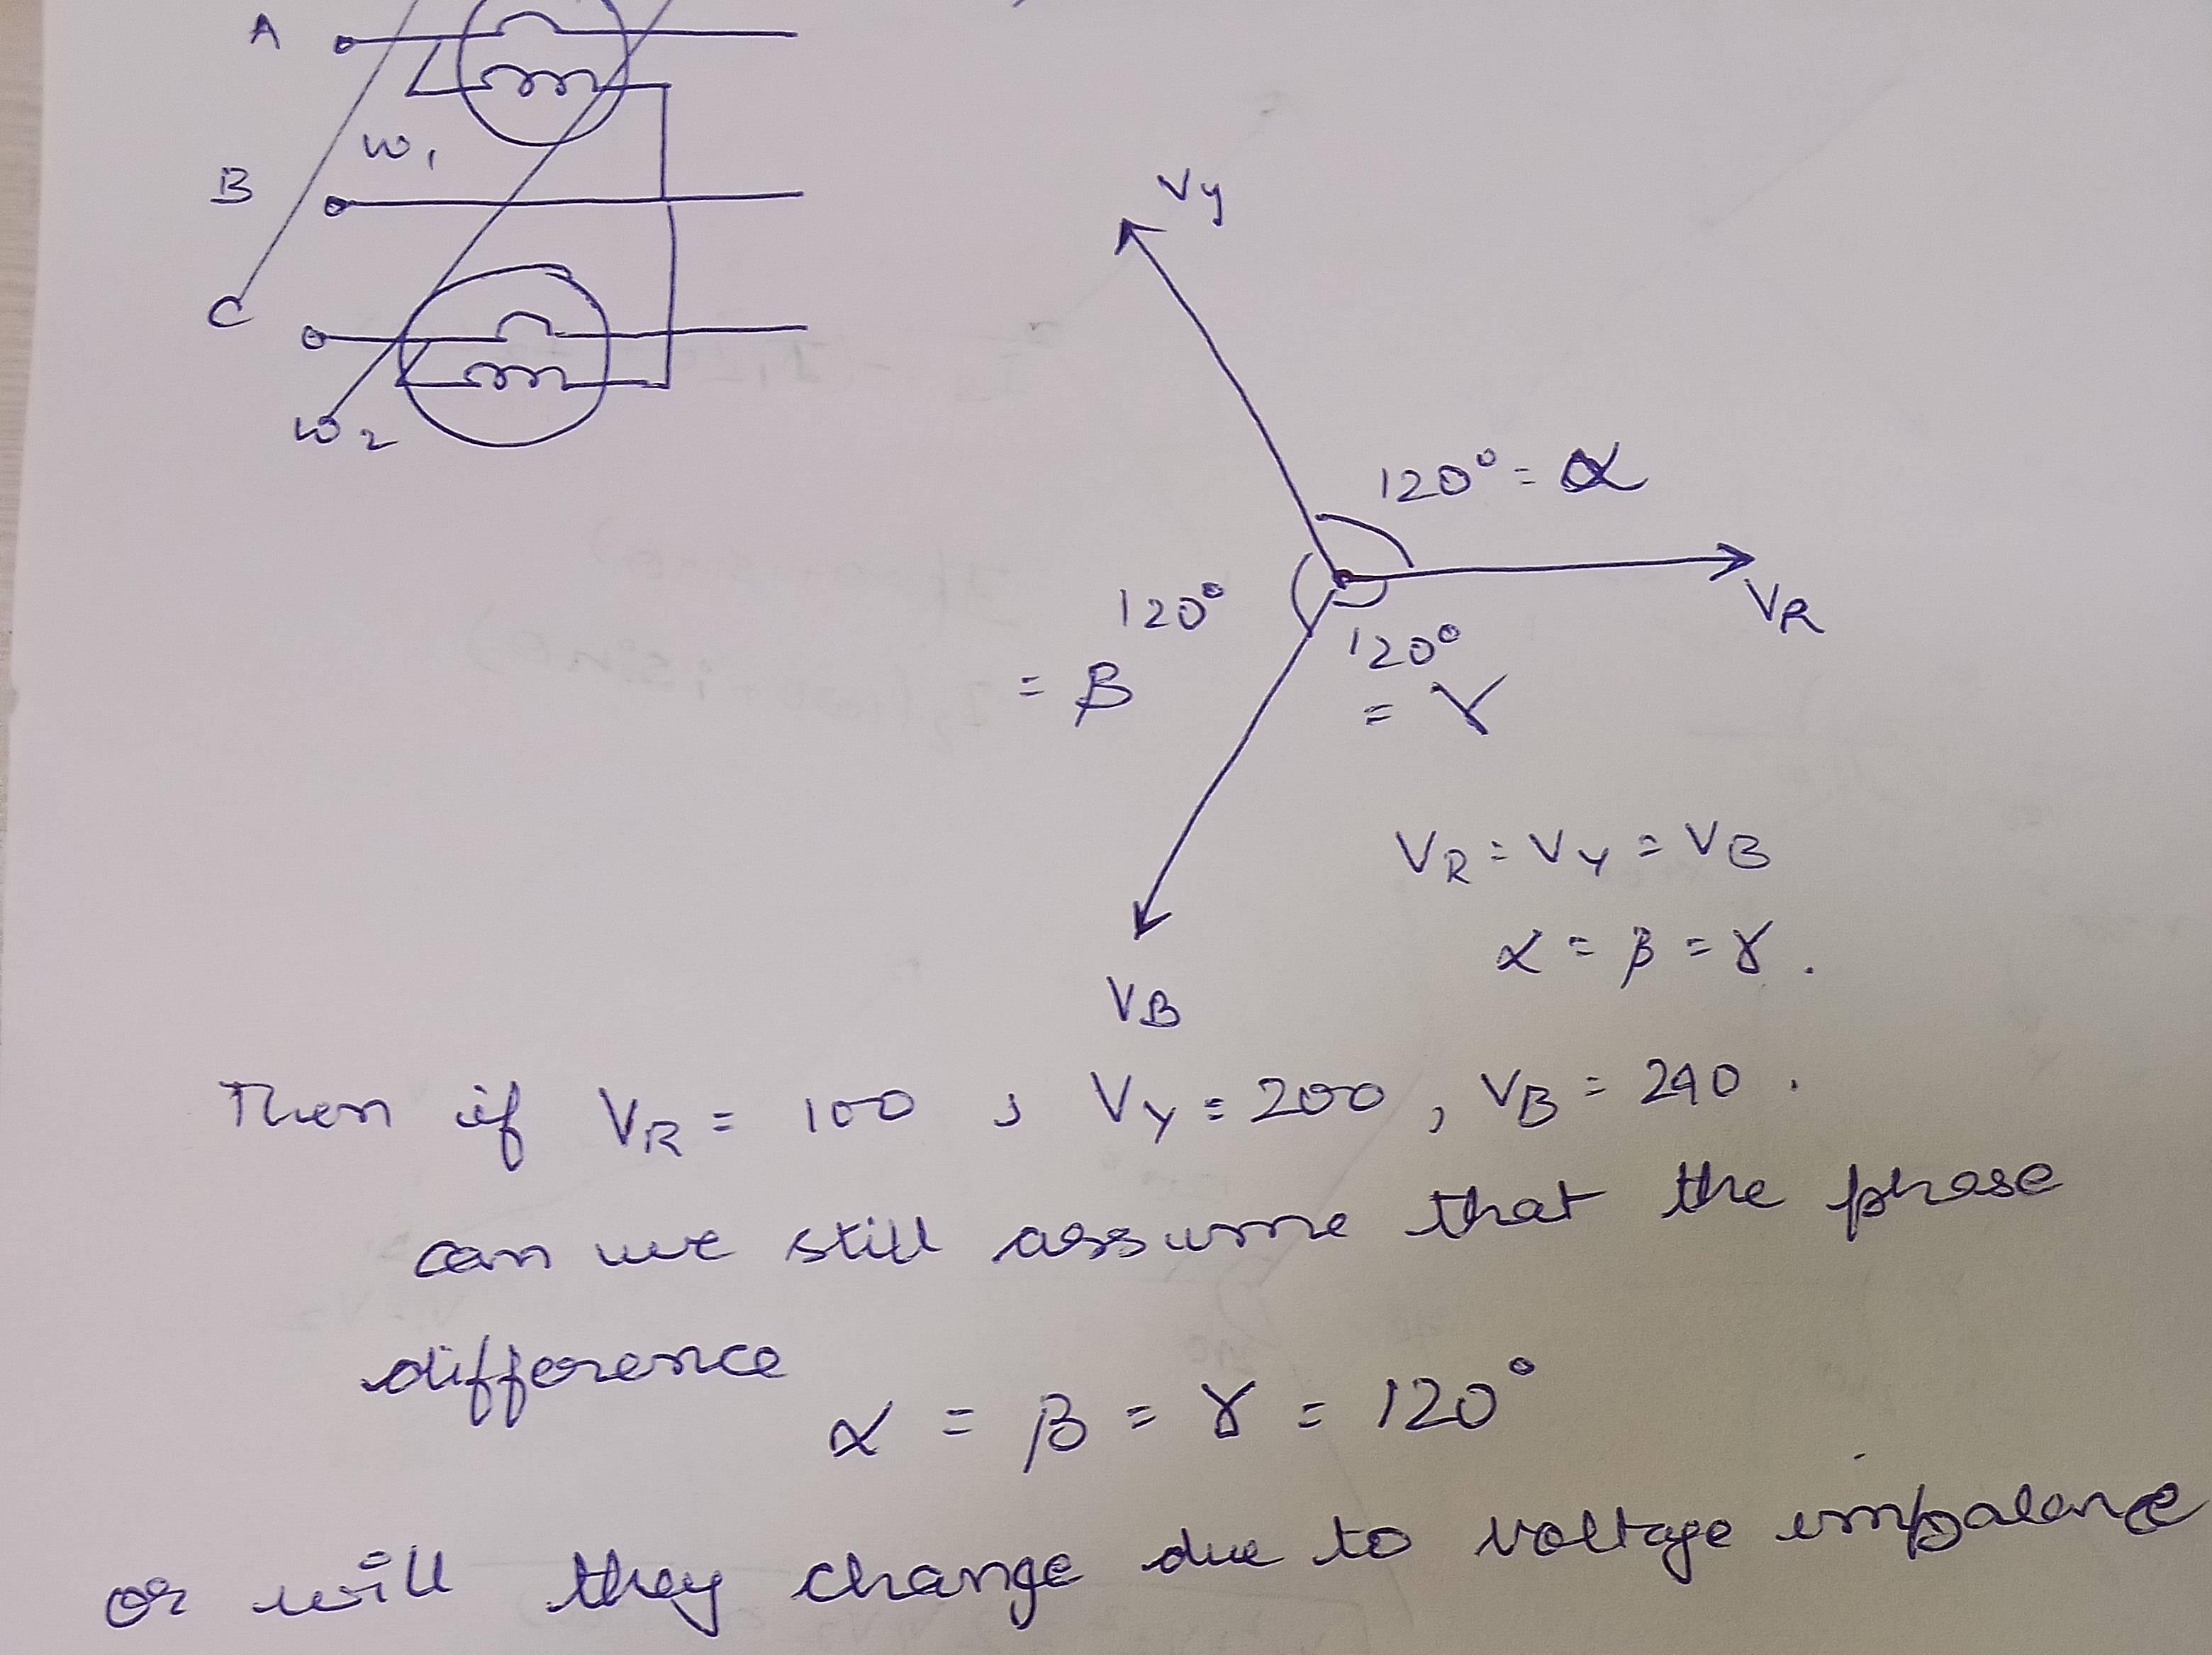 A
W1
B
C
W2
Vy
120° = α
VR
120°
= β
120°
= γ
VB
VR = Vy = VB
α = β = γ .
Then if VR = 100 , Vy = 200 , VB = 240 .
can we still assume that the phase
difference
α = β = γ = 120°
or will they change due to voltage imbalance